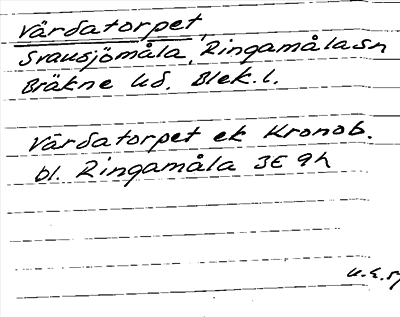 Vårdatorpet,
Svansjömåla, Ringamåla sn
Bräkne hd. Blek. l.
Vårdatorpet ek Kronob.
bl. Ringamåla 3E 9h